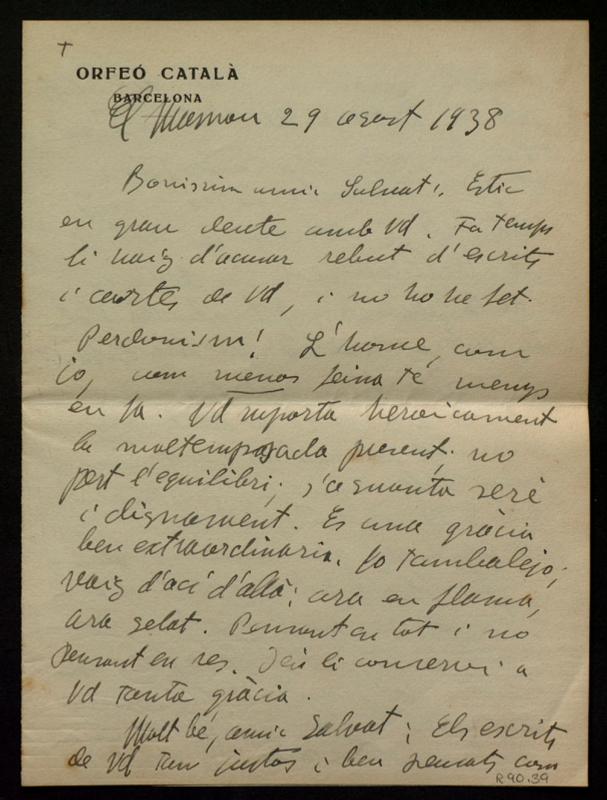 †
ORFEÓ CATALÀ
BARCELONA
El Masnou 29 agost 1938
Boníssim amic Salvat: Estic
en gran deute amb Vd. Fa temps
li haig d'acusar rebut d'escrits
i cartes de Vd, i no ho he fet.
Perdonism! L'home, com
jo, com menos feina té menys
en fa. Vd suporta heroicament
la maltempsada present; no
pert l'equilibri; s'aguanta serè
i dignament. Es una gràcia
ben extraordinaria. Jo tambalejo;
vaig d'ací d'allà; ara en flama,
ara gelat. Pensant en tot i no
pensant en res. Déu li conservi a
Vd tanta gràcia.
Molt bé, amic Salvat; Els escrits
de Vd tan justos i ben pensats com
R90.39